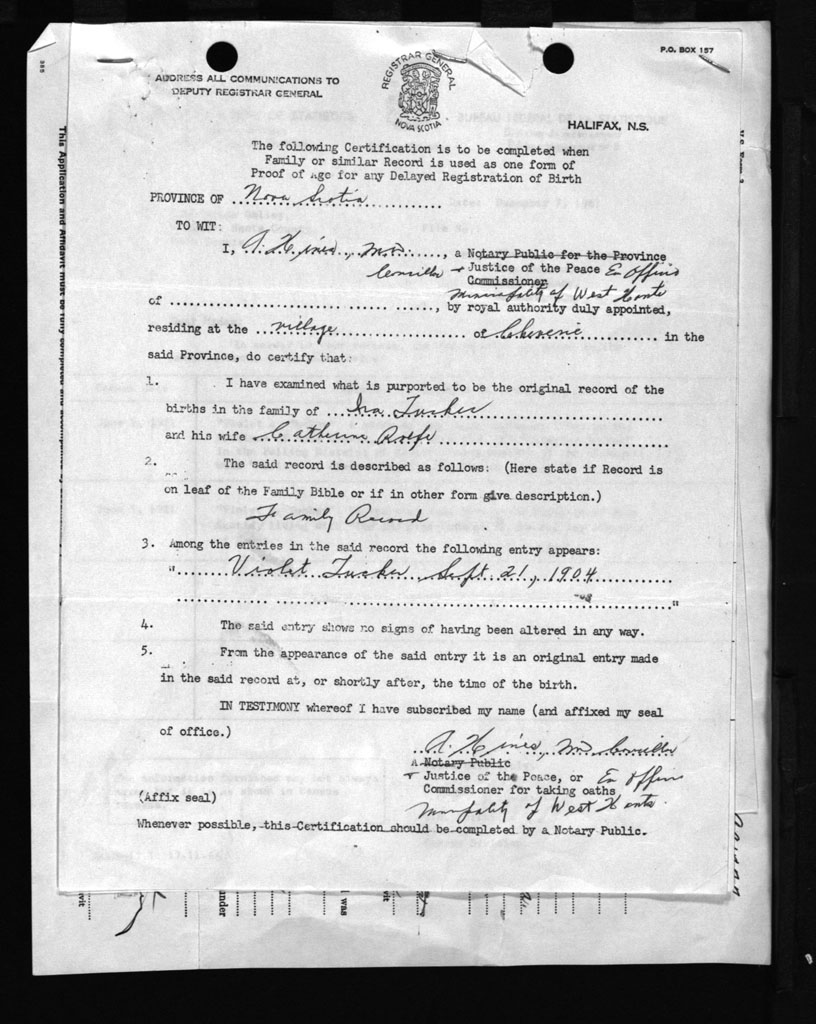 P.O. BOX 157
ADDRESS ALL COMMUNICATIONS TO
DEPUTY REGISTRAR GENERAL
REGISTRAR GENERAL
NOVA SCOTIA
HALIFAX, N.S.
The following Certification is to be completed when
Family or similar Record is used as one form of
Proof of Age for any Delayed Registration of Birth
PROVINCE OF Nova Scotia
TO WIT:
I, A. Hines, Mn., a Notary Public for the Province
Councillor + Justice of the Peace Ex Officio
Commissioner
Municipality of West Hants
of ................, by royal authority duly appointed,
residing at the village of Cheverie in the
said Province, do certify that:
1. I have examined what is purported to be the original record of the
births in the family of Ira Tucker
and his wife Catherine Rolfe
2. The said record is described as follows: (Here state if Record is
on leaf of the Family Bible or if in other form give description.)
Family Record
3. Among the entries in the said record the following entry appears:
" Violet Tucker Sept. 21, 1904
"
4. The said entry shows no signs of having been altered in any way.
5. From the appearance of the said entry it is an original entry made
in the said record at, or shortly after, the time of the birth.
IN TESTIMONY whereof I have subscribed my name (and affixed my seal
of office.)
A. Hines, Mn Councillor
A Notary Public
+ Justice of the Peace, or Ex Officio
Commissioner for taking oaths
Municipality of West Hants.
(Affix seal)
Whenever possible, this Certification should be completed by a Notary Public.
This Application and Affidavit must be fully completed and
under
I was